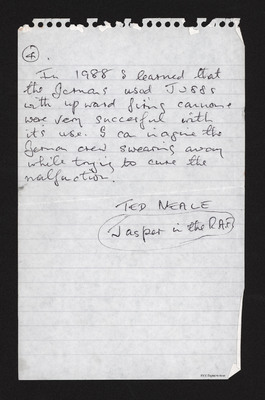 4.
In 1988 I learned that
the Germans used JU88s
with upward firing cannons
were very succesful with
its use. I can imagine the
German crew swearing away
while trying to cure the
malfuction.
TED NEALE
(Jasper in the RAF)